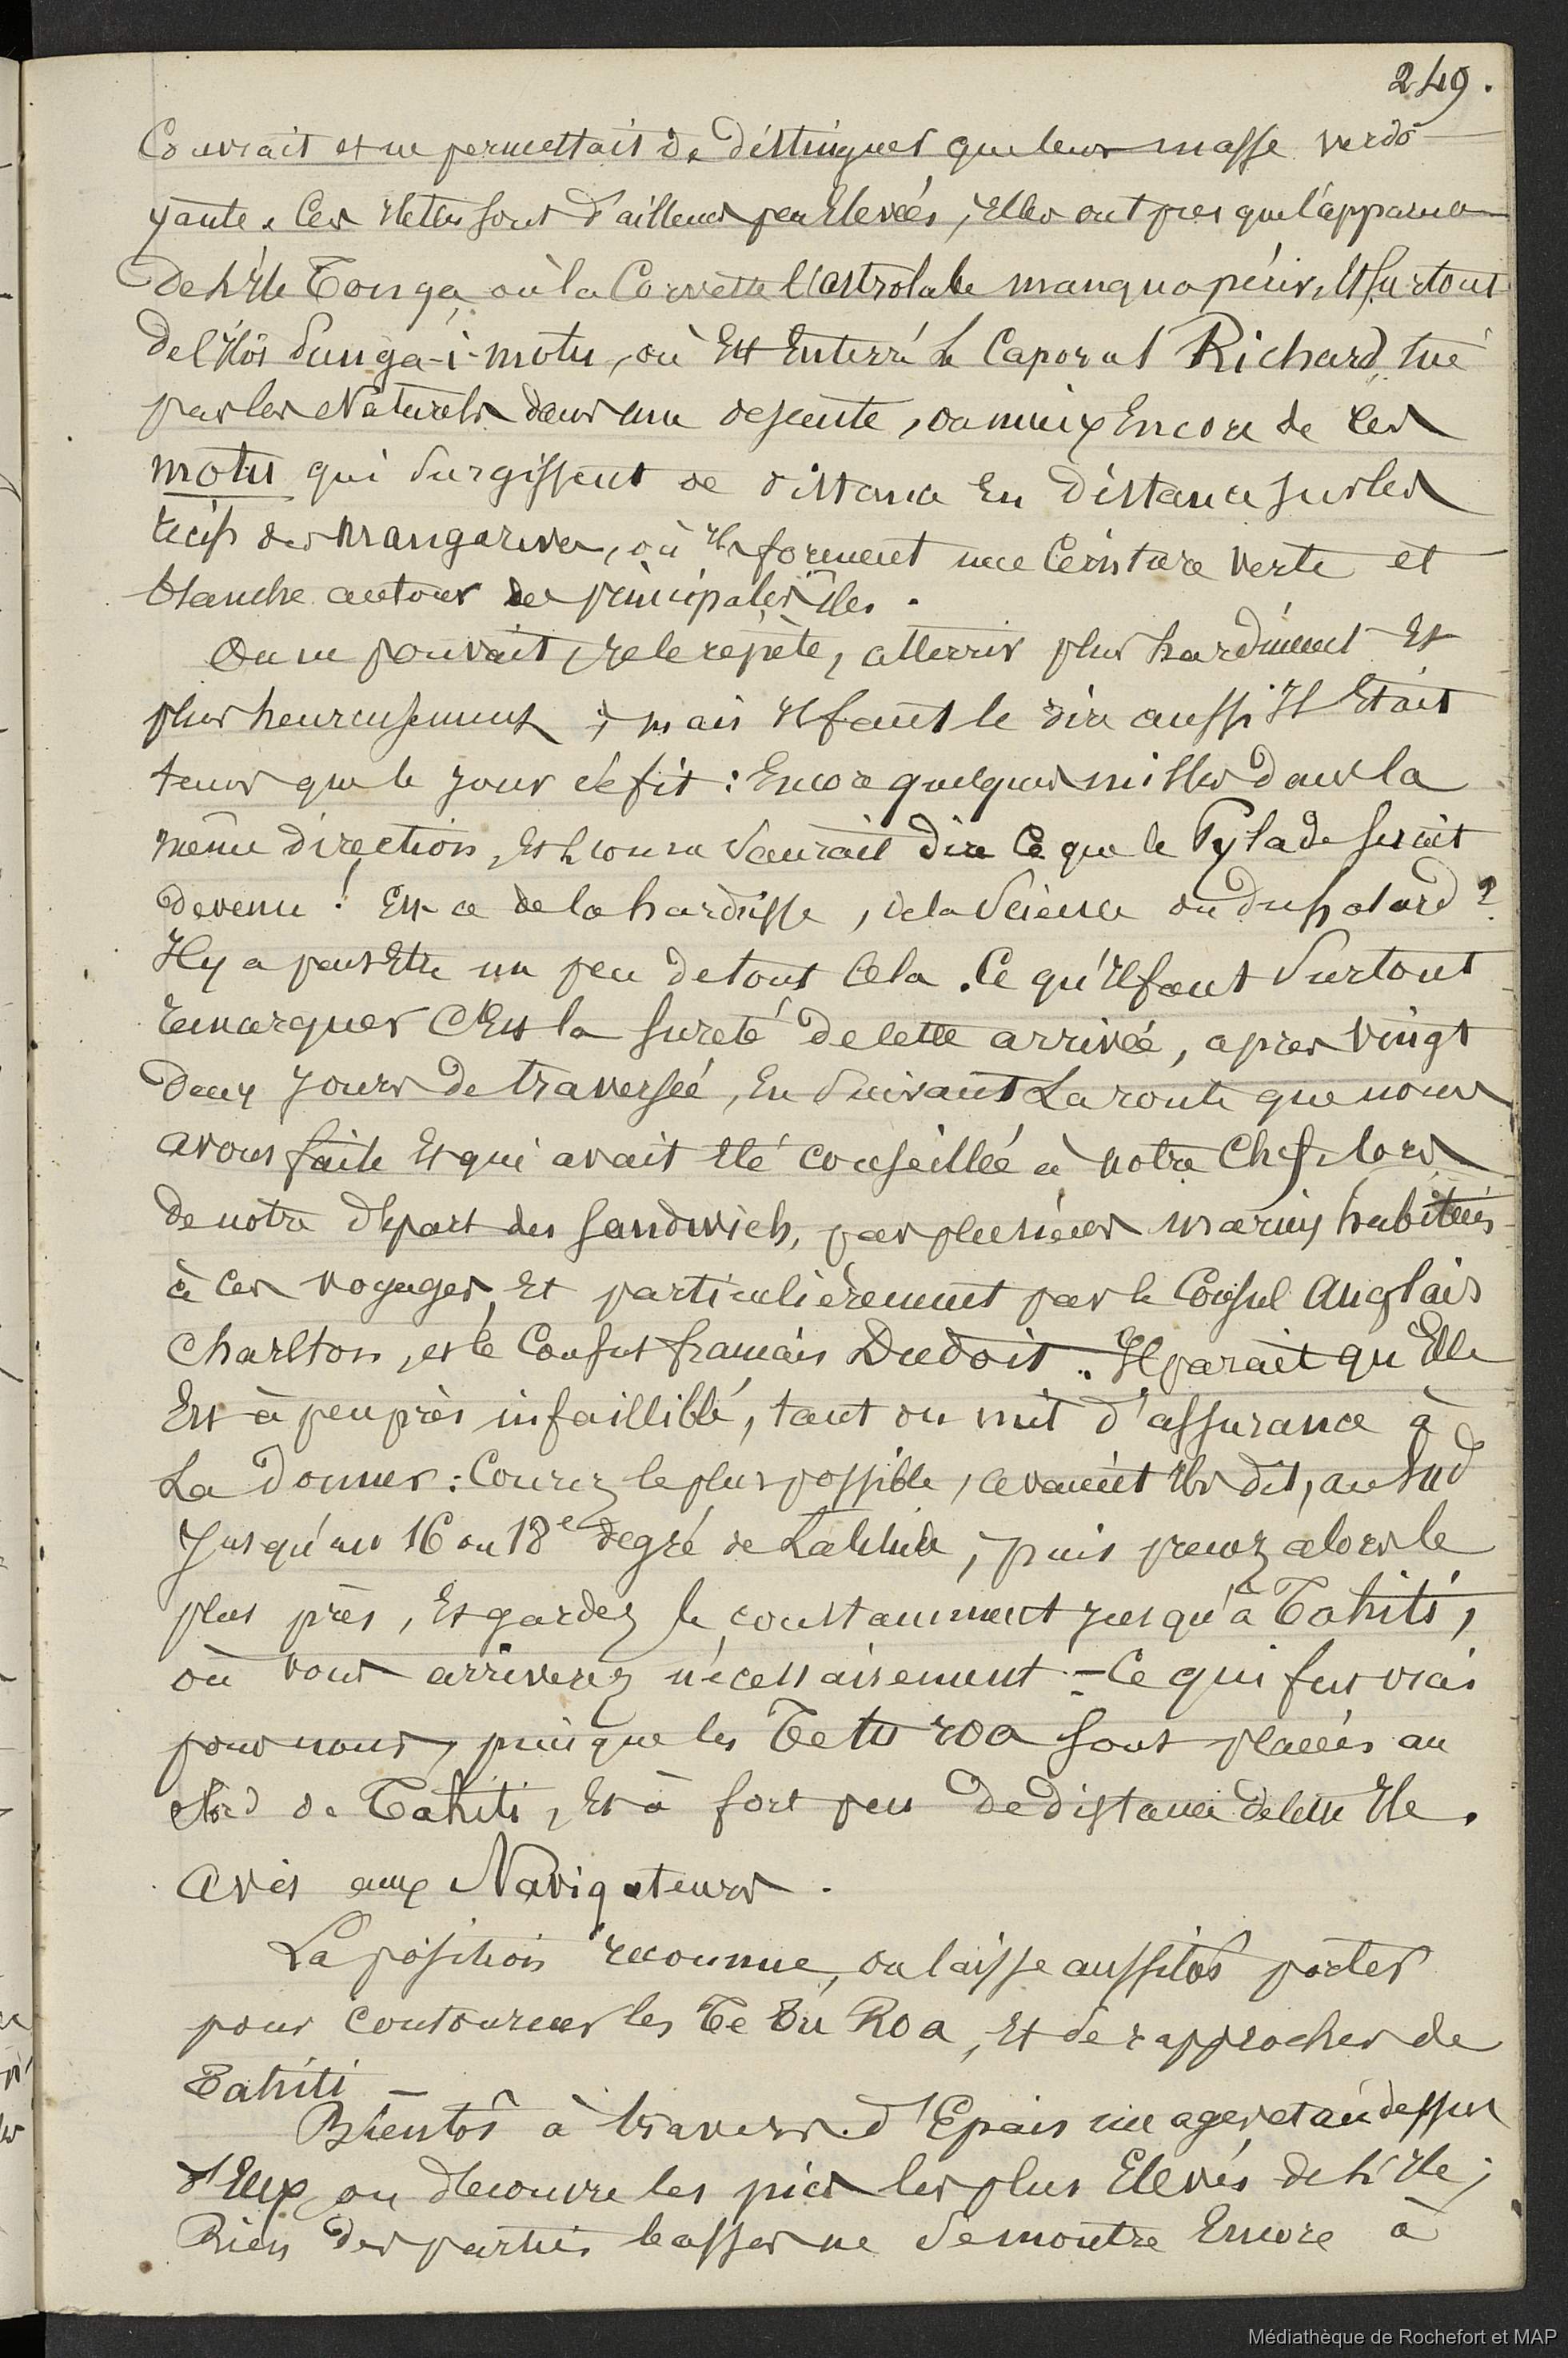 249.
Couvrait et ne permettait de distinguer que leur masse verdo
yante. Ces Ilettes sont d'ailleurs peu Elevées, Elles ont presque l'apparence
de l'Ile Tonga, où la Corvette l'astrolabe manqua périr, Et surtout
de l'Ilôt Punga-i-motu, où Est Enterré le Caporal Richard, tué
par les Naturels dans une descente, ou mieux Encore de ces
motu qui surgissent de distance En distance sur les
récifs des Mangareva, où Ils forment une Ceinture verte et
blanche autour des principales Iles.
On ne pouvait, je le répète, atterrir plus hardiment Et
plus heureusement ; mais Il faut le dire aussi Il Etait
tems que le jour se fit : Encore quelques milles dans la
même direction, Et l'on ne saurait dire Ce que le Pylade serait
devenu ! Est-ce de la hardiesse, de la Science ou du hasard ?
Il y a peut Etre un peu de tout Cela. Ce qu'Il faut surtout
remarquer C'Est la sureté de cette arrivée, après vingt
deux jours de traversée, En suivant La route que nous
avons faite Et qui avait Eté conseillée à notre Chef, lors
de notre départ des Sandwich, par plusieurs marins habitués
à ces voyages, Et particulièrement par le Consul Anglais
Charlton, et le Consul français Dudoit. Il parait qu'Elle
Est à peu près infaillible, tant on mit d'assurance à
La donner : Courez le plus possible, avaient Ils dit, au Sud
Jusqu'au 16 ou 18e degré de Latitude, puis prenez alors le
plus près, Et gardez le constamment jusqu'à Tahiti,
où vous arriverez nécessairement. - Ce qui fut vrai
pour nous, puisque les Te tu roa sont placées au
Nord de Tahiti, Et à fort peu de distance de cette Ile.
Avis aux Navigateurs.
La position reconnue, on laisse aussitôt porter
pour contourner les Te Tu Roa, Et se rapprocher de
Tahiti —
Bientôt à travers d'Epais nuages, et au dessus
d'Eux, on découvre les pics les plus Elevés de l'Ile ;
Rien des parties basses ne se montre Encore à
Médiathèque de Rochefort et MAP